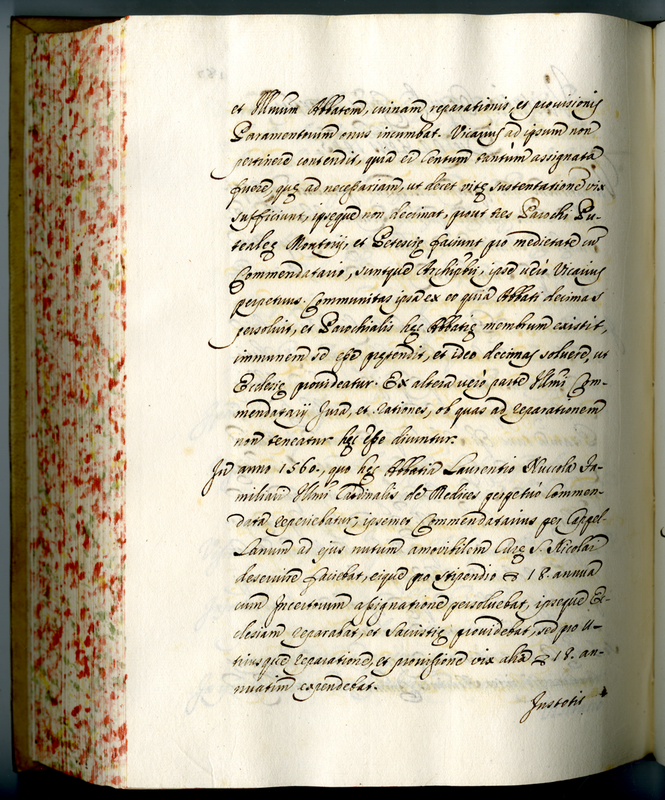 et Illmum Abbatem, cuinam reparationis, et provisionis
Paramentorum onus incumbat. Vicarius ad ipsum non
pertinere contendit, quia ei Centum tantum assignata
fuere, quę ad necessariam, ut decet vitę sustentatione vix
sufficiunt, ipseque non decimat, prout tres Parochi Pu-
tealeę Montorij, et Petescię faciunt pro medietate cu
Commendatario, suntque Archipbri, ipse vero Vicarius
perpetuus. Communitas ipsa ex eo quia Abbati decimas
persoluit, et Parochialis hęc Abbatię membrum existit,
immunem se esse pretendit, et ideo decimas soluere, ut
Ecclesię provideatur. Ex altera vero parte Illmi Com-
mendatarij Jura, et rationes, ob quas ad reparationem
non teneatur hęc esse dicuntur.
In anno 1560., quo hęc Abbatia Laurentio Nuccola Fa-
miliari Illmi Cardinalis de Medices perpetuo Commen-
data reperiebatur, ipsemet Commendatarius per Cappel-
lanum ad ejus nutum amovibilem Curę S. Nicolai
deservire faciebat, eique pro stipendio 18. annua
cum Incertorum assignatione persoluebat, ipseque Ec-
clesiam reparabat, et Sacristię providebat, sed pro u-
triusque reparatione, et provisione vix alia 18. an-
nuatim expendebat.